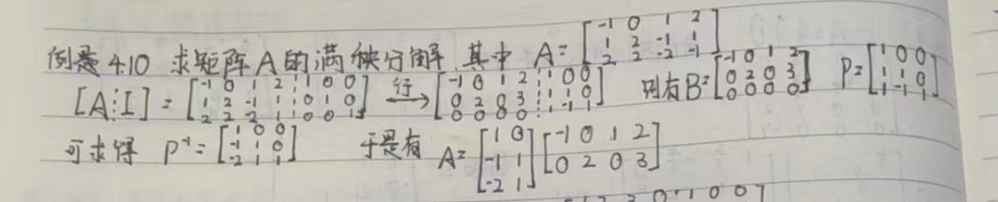 例题4.10 求矩阵A的满秩分解 其中 A=[-1 0 1 2; 1 2 -1 1; 2 2 -2 -1]
[A⋮I] = [-1 0 1 2 ⋮ 1 0 0; 1 2 -1 1 ⋮ 0 1 0; 2 2 -2 1 ⋮ 0 0 1] 行→ [-1 0 1 2 ⋮ 1 0 0; 0 2 0 3 ⋮ 1 1 0; 0 0 0 0 ⋮ 1 -1 1] 则有B=[-1 0 1 2; 0 2 0 3; 0 0 0 0] P=[1 0 0; 1 1 0; 1 -1 1]
可求得 P⁻¹=[1 0 0; -1 1 0; -2 1 1] 于是有 A=[1 0; -1 1; -2 1][-1 0 1 2; 0 2 0 3]